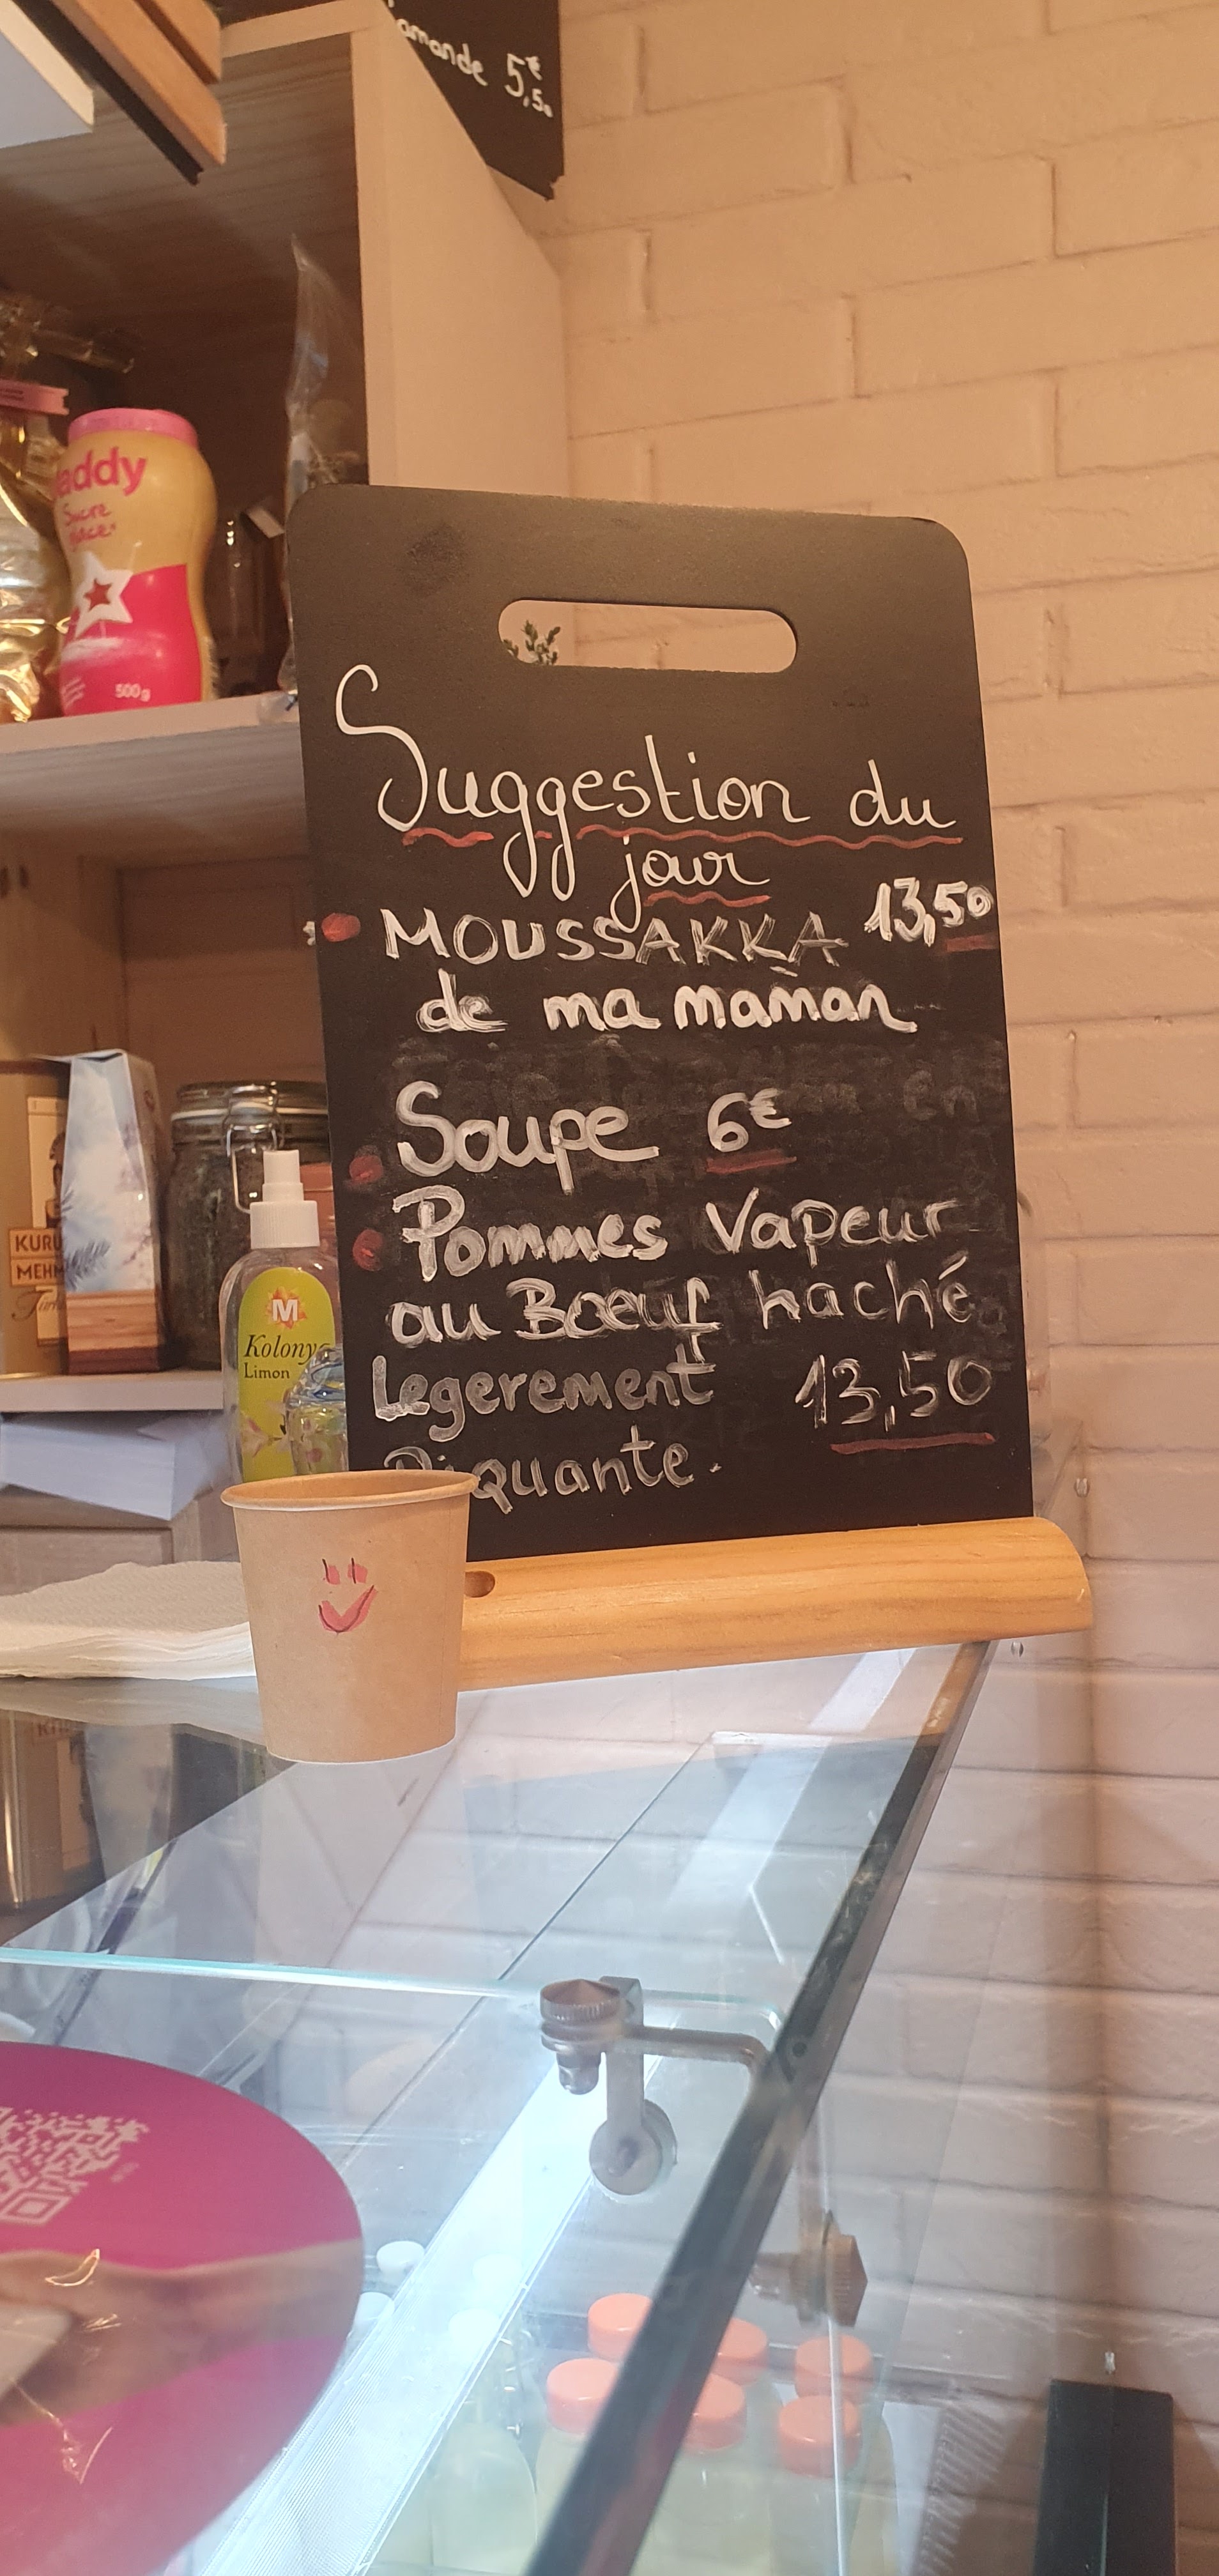 amande 5,50€
Sucre
500g
Suggestion du
jour
MOUSSAKKA 13,50
de ma maman
Soupe 6€
Pommes Vapeur
au Boeuf haché
Legerement 13,50
Piquante.
KURU
MEHM
M
Kolonya
Limon